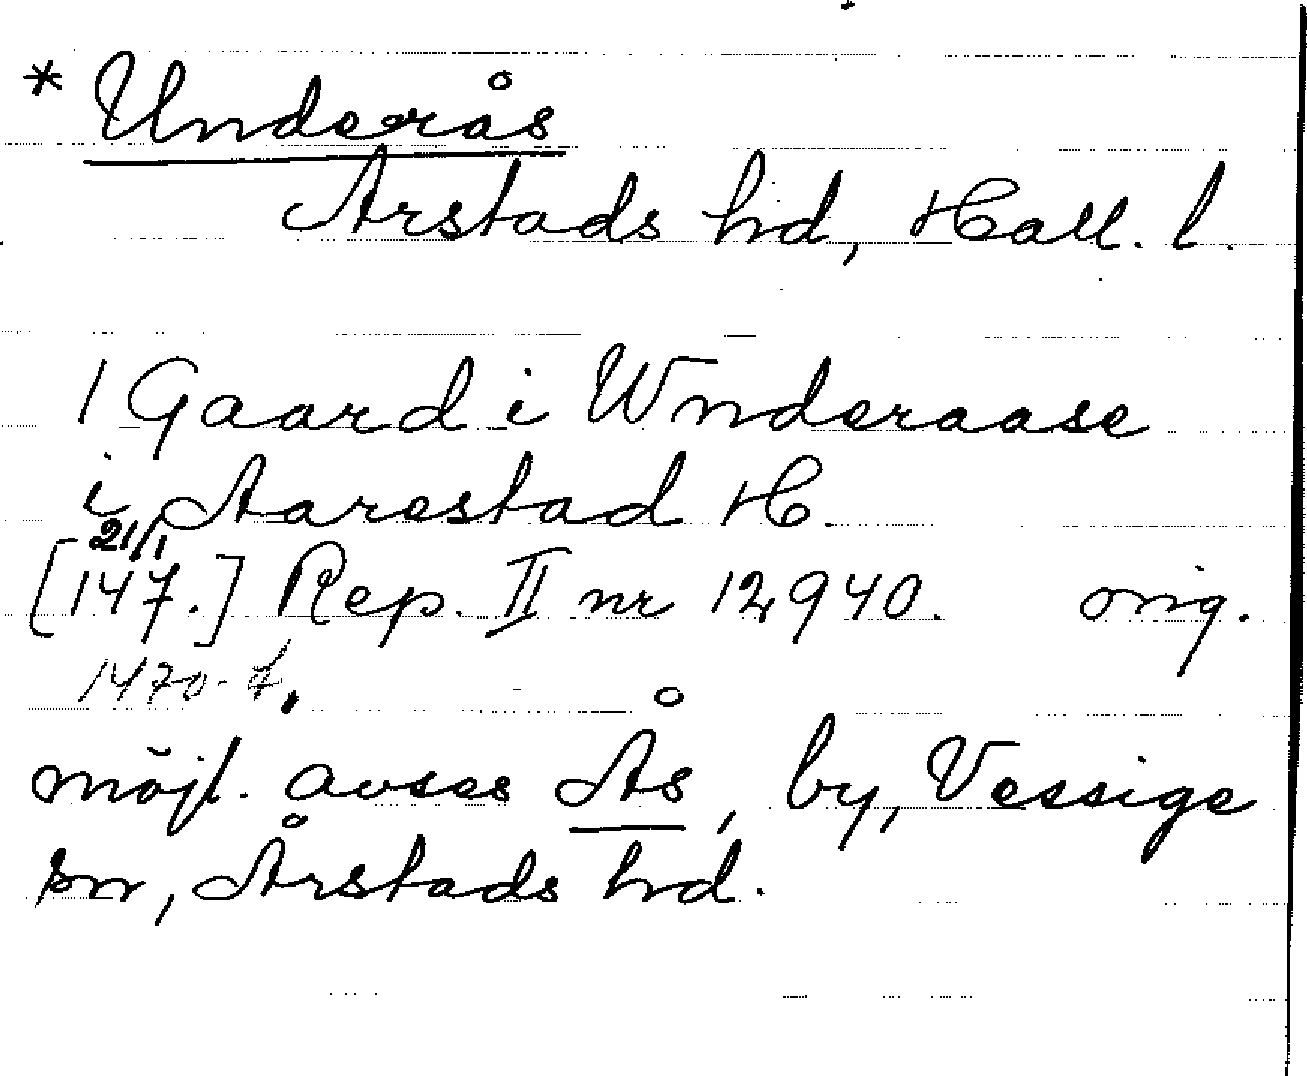 * Underås
Årstads hd, Hall. l.
1 Gaard i Wnderaase
i Aarestad H
21/1
[147.] Rep. II nr 12940. orig.
1470-t.
möjl. avses Ås, by, Vessige
sn, Årstads hd.